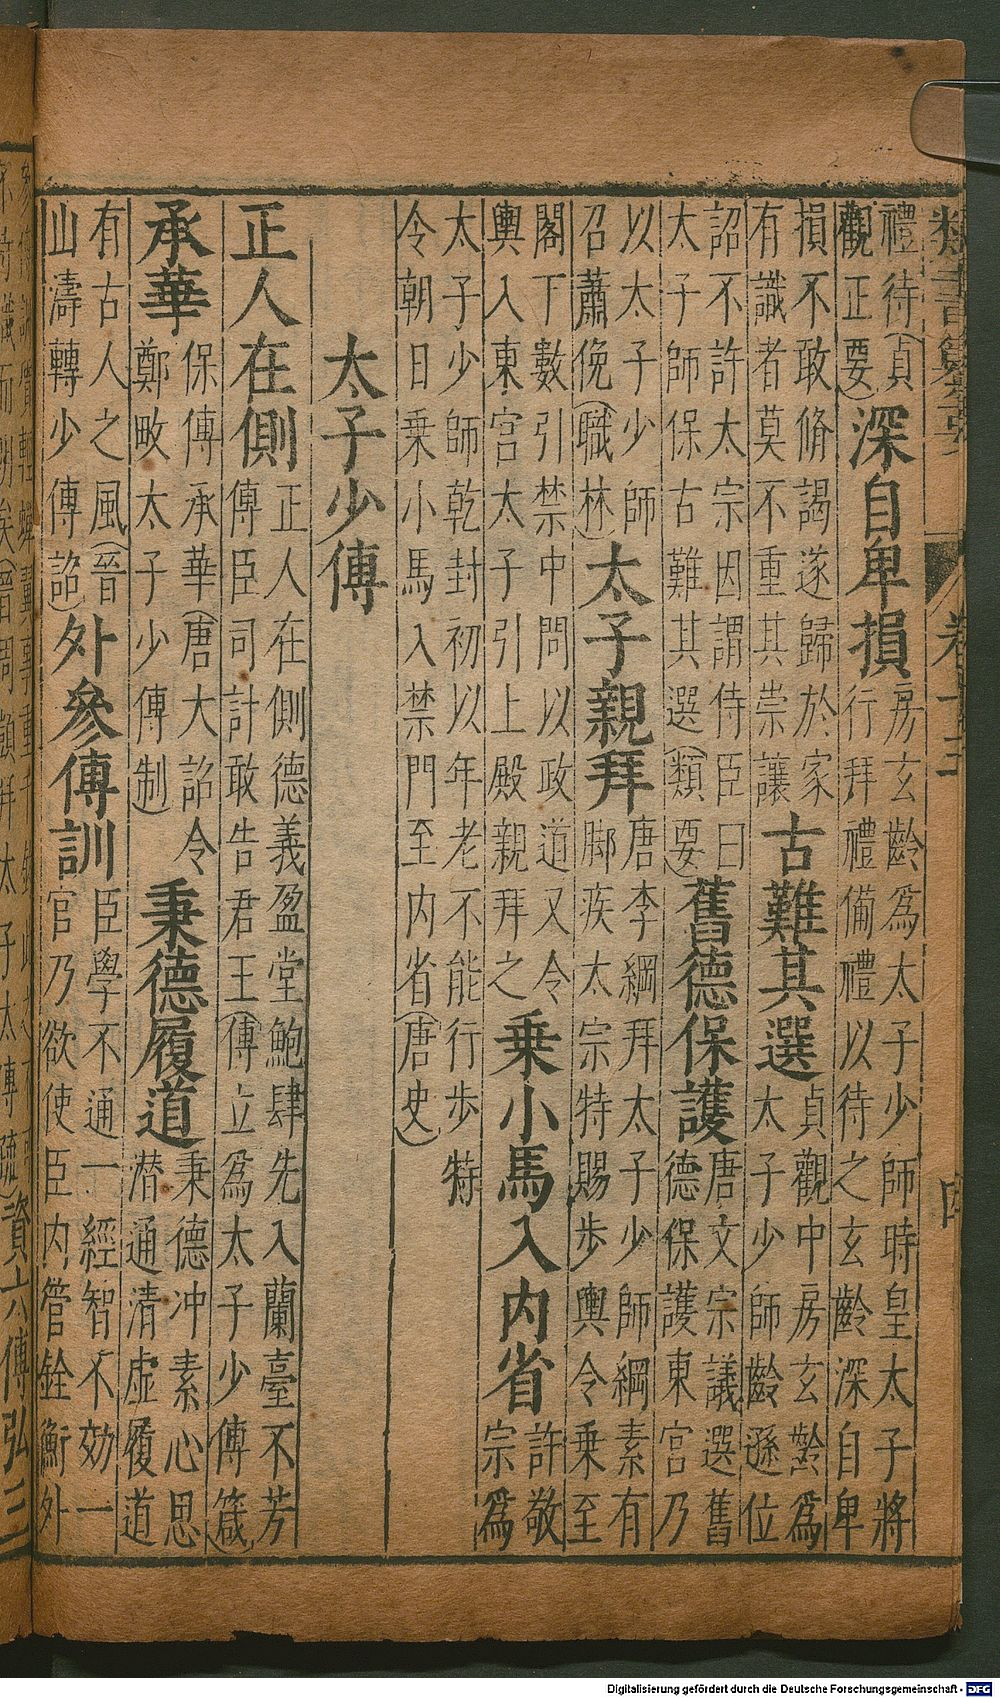 卷十三
四
禮待(貞
觀正要)
深自卑損
房玄齡為太子少師時皇太子將
行拜禮備禮以待之玄齡深自卑
損不敢脩謁遂歸於家
有識者莫不重其崇讓
古難其選
貞觀中房玄齡為
太子少師齡遜位
詔不許太宗因謂侍臣曰
太子師保古難其選(類要)
舊德保護
唐文宗議選舊
德保護東宮乃
以太子少師
召蕭俛(職林)
太子親拜
唐李綱拜太子少師綱素有
脚疾太宗特賜步輿令乗至
閣下數引禁中問以政道又令
輿入東宮太子引上殿親拜之
乗小馬入內省
許敬
宗為
太子少師乾封初以年老不能行步特
令朝日乗小馬入禁門至內省(唐史)
太子少傅
正人在側
正人在側德義盈堂鮑肆先入蘭臺不芳
傅臣司計敢告君王(傅立為太子少傅箴)
承華
保傅承華(唐大詔令
鄭畋太子少傅制)
秉德履道
秉德冲素心思
潜通清虛履道
有古人之風(晉
山濤轉少傅詔)
外參傅訓
臣學不通一經智不効一
官乃欲使臣內管銓衡外
資六傅弘三
Digitalisierung gefördert durch die Deutsche Forschungsgemeinschaft - DFG